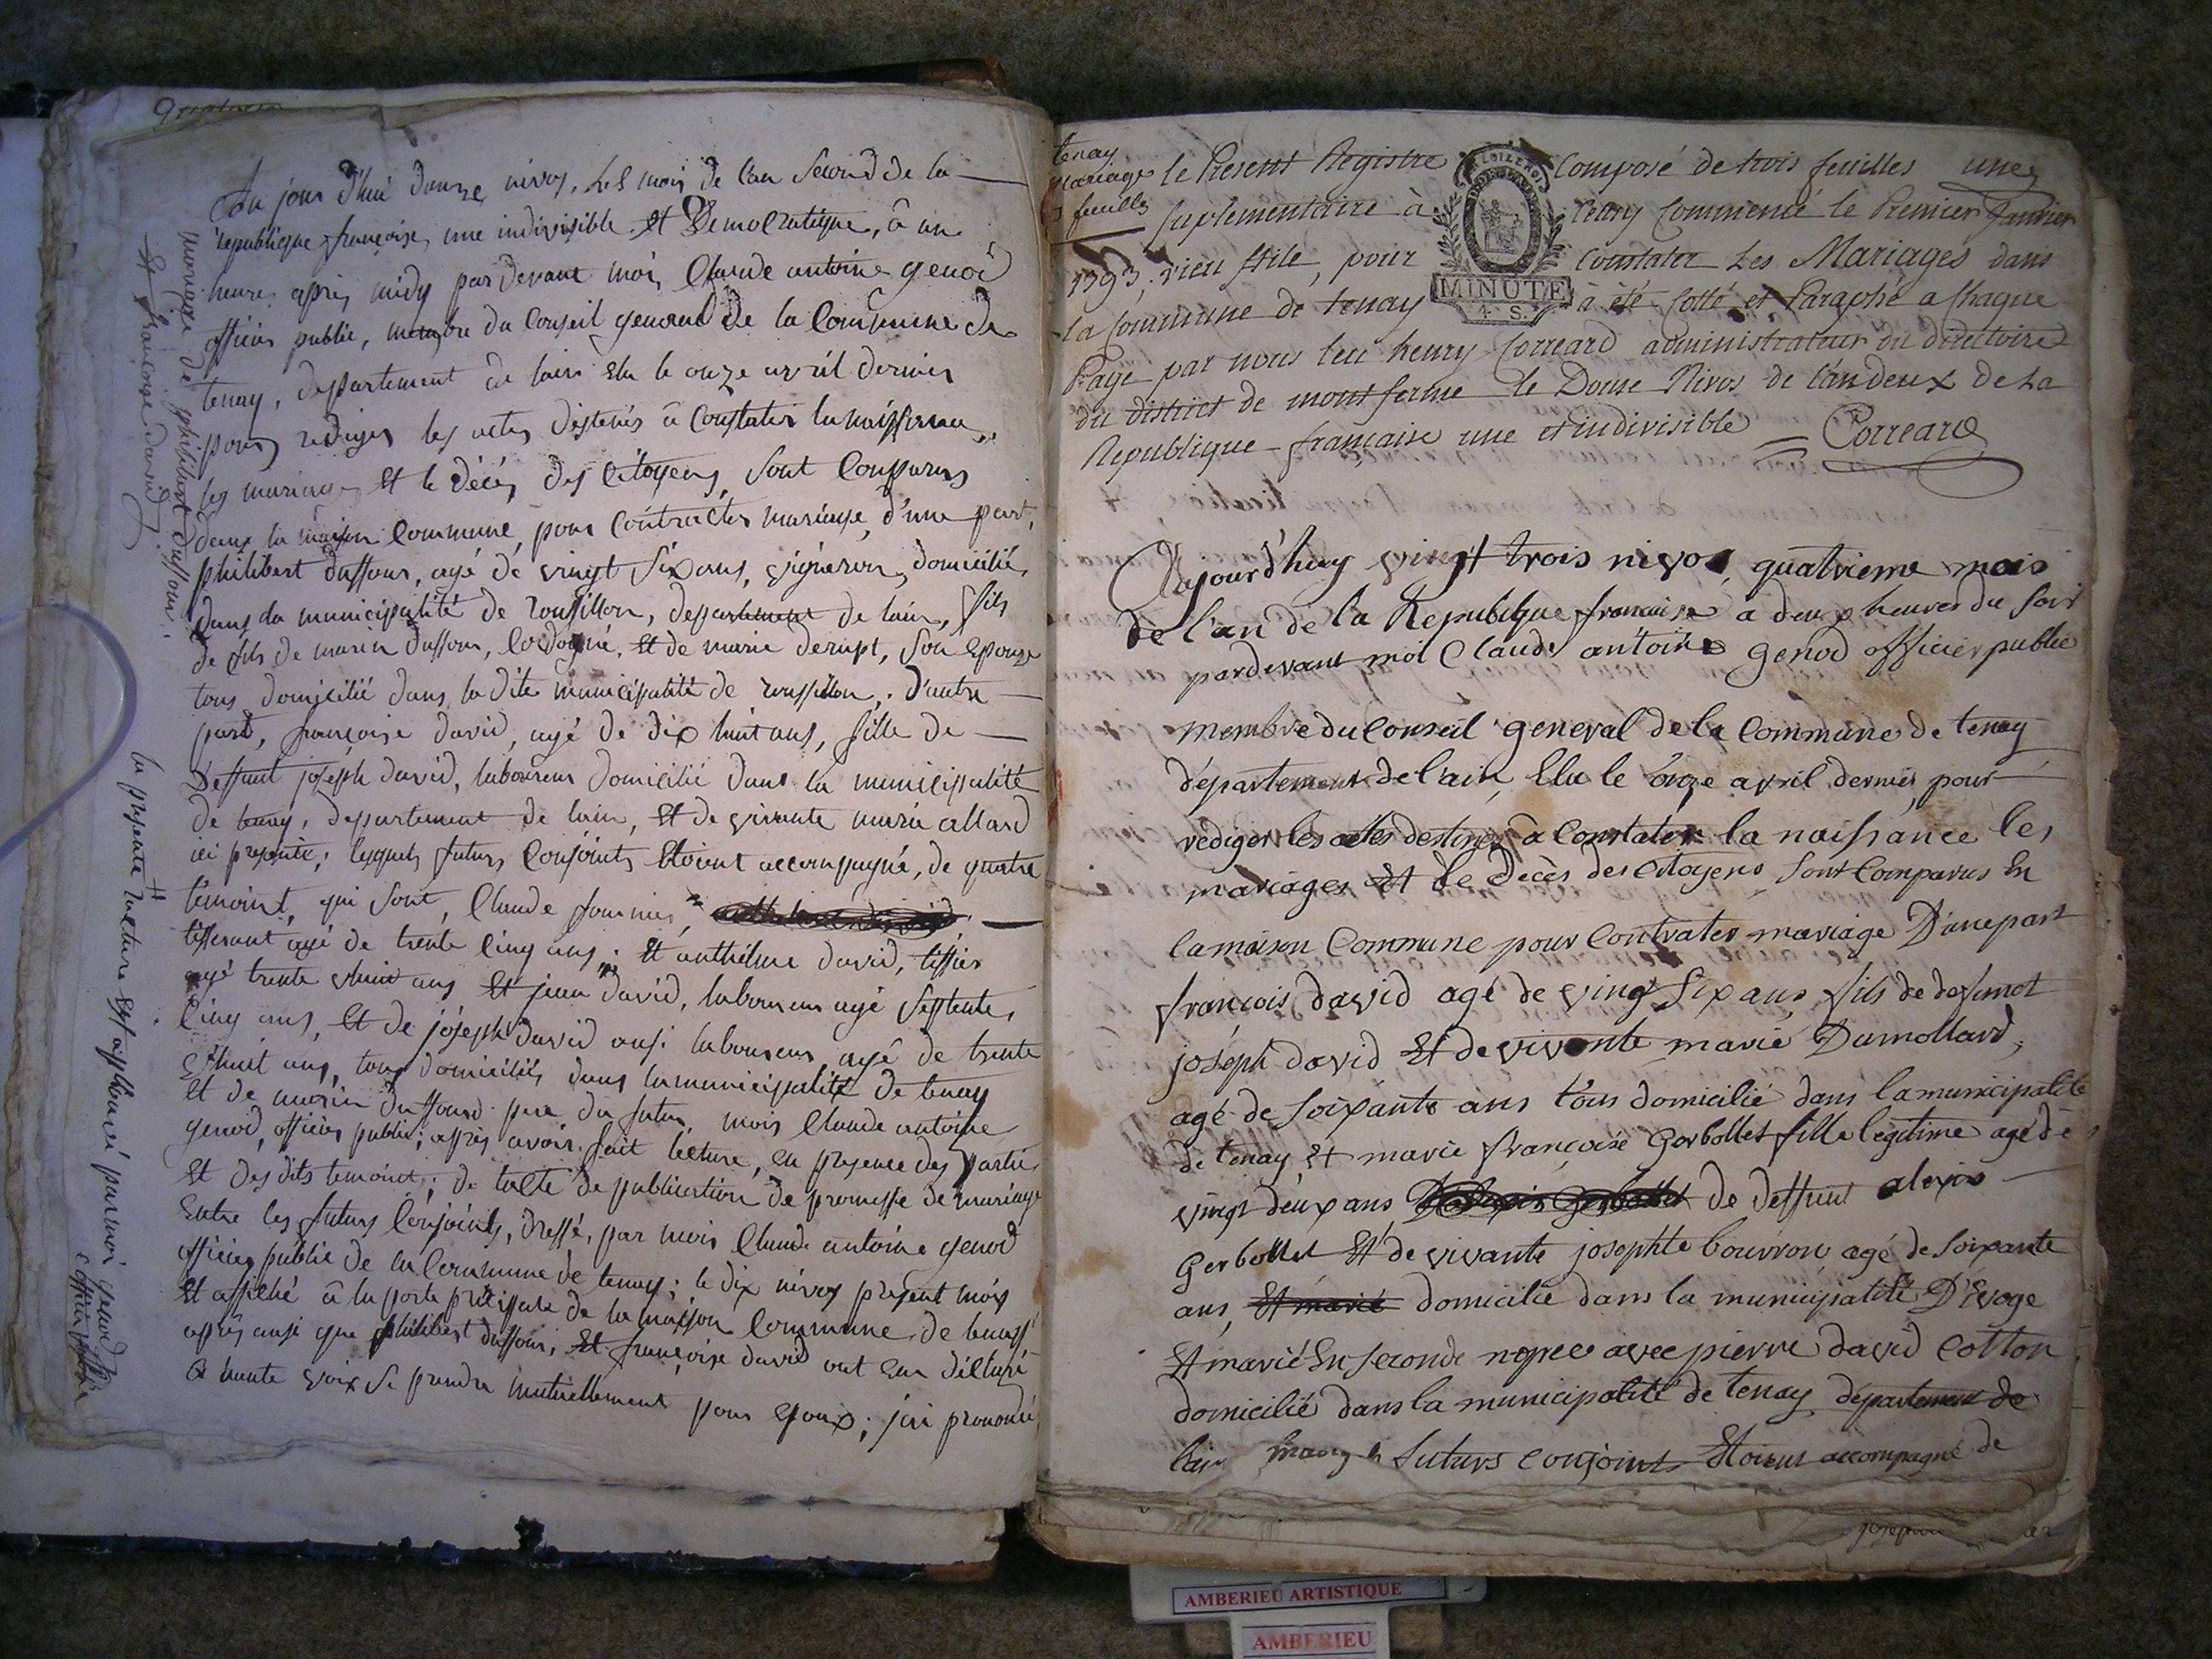 du jour d'huî douze nivos, del mois de l'an second de la
republique françoise, une indivisible et Democratique, â une
heures après midy par devant mois Claude antoine genod
officier public, membre du Conseil general de la Commune de
tenay, departement de lain elu le onze avril dernier
pour rediger les actes destinés â Constater la naissance,
les mariages et le décès des Citoyens, sont Comparus
dans la maison Commune, pour contracter mariage, d'une part,
philibert duffour, agé dé vingt six ans, vigneron, domicilié,
dans la municipalité de rousillon, departement de lain, fils
de fils de marin duffour, et de marie derupt, son epouze
tous domicilié dans la dite municipalité de roussillon,. d'autre
part, françoise david, agé de dix huit ans, fille de
deffunt joseph david, laboureur domicilié dans la municipalité
de tenay, departement de lain, et de vivante marie allard
ici presente; lesquels futurs Conjoints etoient accompagné, de quatre
témoint, qui sont, Claude fournier
tisserant agé de trente cinq ans,. et anthelme david, tissier
agé trente huit ans et jean david, laboureur agé septente,
cinq ans, et de joseph david ausi laboureur, agé de trente
huit ans, tous domiciliés dans la municipalité de tenay
et de marin duffourd pere du futur, mois Claude antoine
genod, officier public; après avoir fait lecture, en presence des parties
et des dits temoint; de lacte de publication de promesse de mariage
entre les futurs Conjoints, dressé, par mois Claude antoine genod
officier public de la Commune de tenay; le dix nivos present mois
et affiché â la porte principale de la maison Commune de tenay
après ausi que philibert duffour, et françoise david ont eu déclaré
â haute voix se prendre mutuellement pour epoux; j'ai prononcé
mariage de philibert duffour
et françoise david
la presente rature est approuvé par moi genod
officier public
tenay
mariage
3 feuilles
le Present Registre Composé de trois feuilles une
suplementaire à celuy Commencé le Premier Janvier
1793, vieu stile, pour Constater Les Mariages dans
la Commune de tenay à été Cotté et Paraphé a Chaque
Page par nous leu henry Correard administrateur du directoire
du district de mont ferme le Douze Nivos de l'an deux de La
Republique française une et indivisible Correard
LA LOI LE ROI
MINUTE
4. S.
Aujourd'huy vingt trois nivos, quatrieme mois
de l'an de la Republique francaise a deux heures du soir
pardevant moi Claude antoine genod officier public
membre du Conseil general de la Commune de tenay
département de l'ain Elu le onze avril dernier pour
rediger les actes destinés à Constater la naissance les
mariages Et le Décès des Citoyens sont Comparus En
la maison Commune pour Contrater mariage D'une part
françois david agé de ving six ans fils de defunot
joséph david Et de vivante marie Dumollard,
agé de soixante ans tous domicilié dans la municipalité
de tenay Et marie françoise Gerbollet fille legitime agé de
vingt deux ans de deffunt alexis
Gerbollet Et de vivante josephte bouvron agé de soixante
ans, Et marié domicilié dans la municipalité D'Evoge
Et marié En seconde nopce avec pierre david Cotton
domicilié dans la municipalité de tenay département de
lain futurs conjoints Etoient accompagné de
AMBERIEU ARTISTIQUE
AMBERIEU